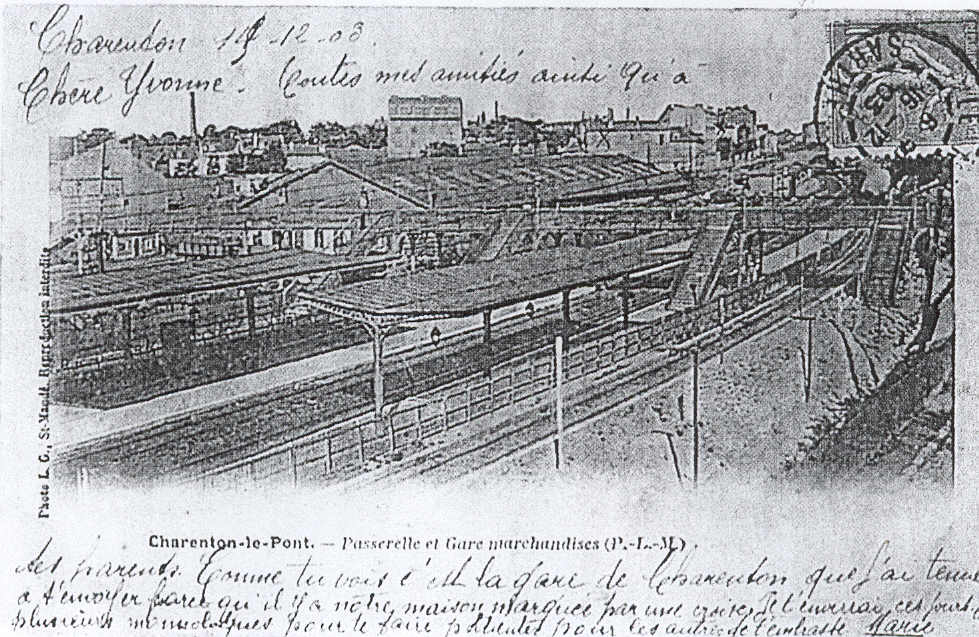 Charenton 15-12-03
Chère Yvonne. Toutes mes amitiés ainsi qu'à
SARTHE
Photo L. G., St-Mandé. Reproduction interdite
Charenton-le-Pont. — Passerelle et Gare marchandises (P.-L.-M.)
tes parents. Comme tu vois c'est la gare de Charenton que j'ai tenu
à t'envoyer parce qu'il y a notre maison marquée par une croix. Je t'enverrai ces jours
plusieurs monologues pour te faire patienter pour les autres. Je t'embrasse Marie